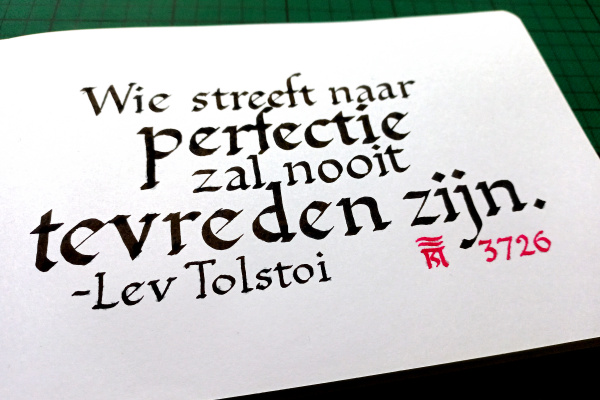 Wie streeft naar
perfectie
zal nooit
tevreden zijn.
-Lev Tolstoi
3726